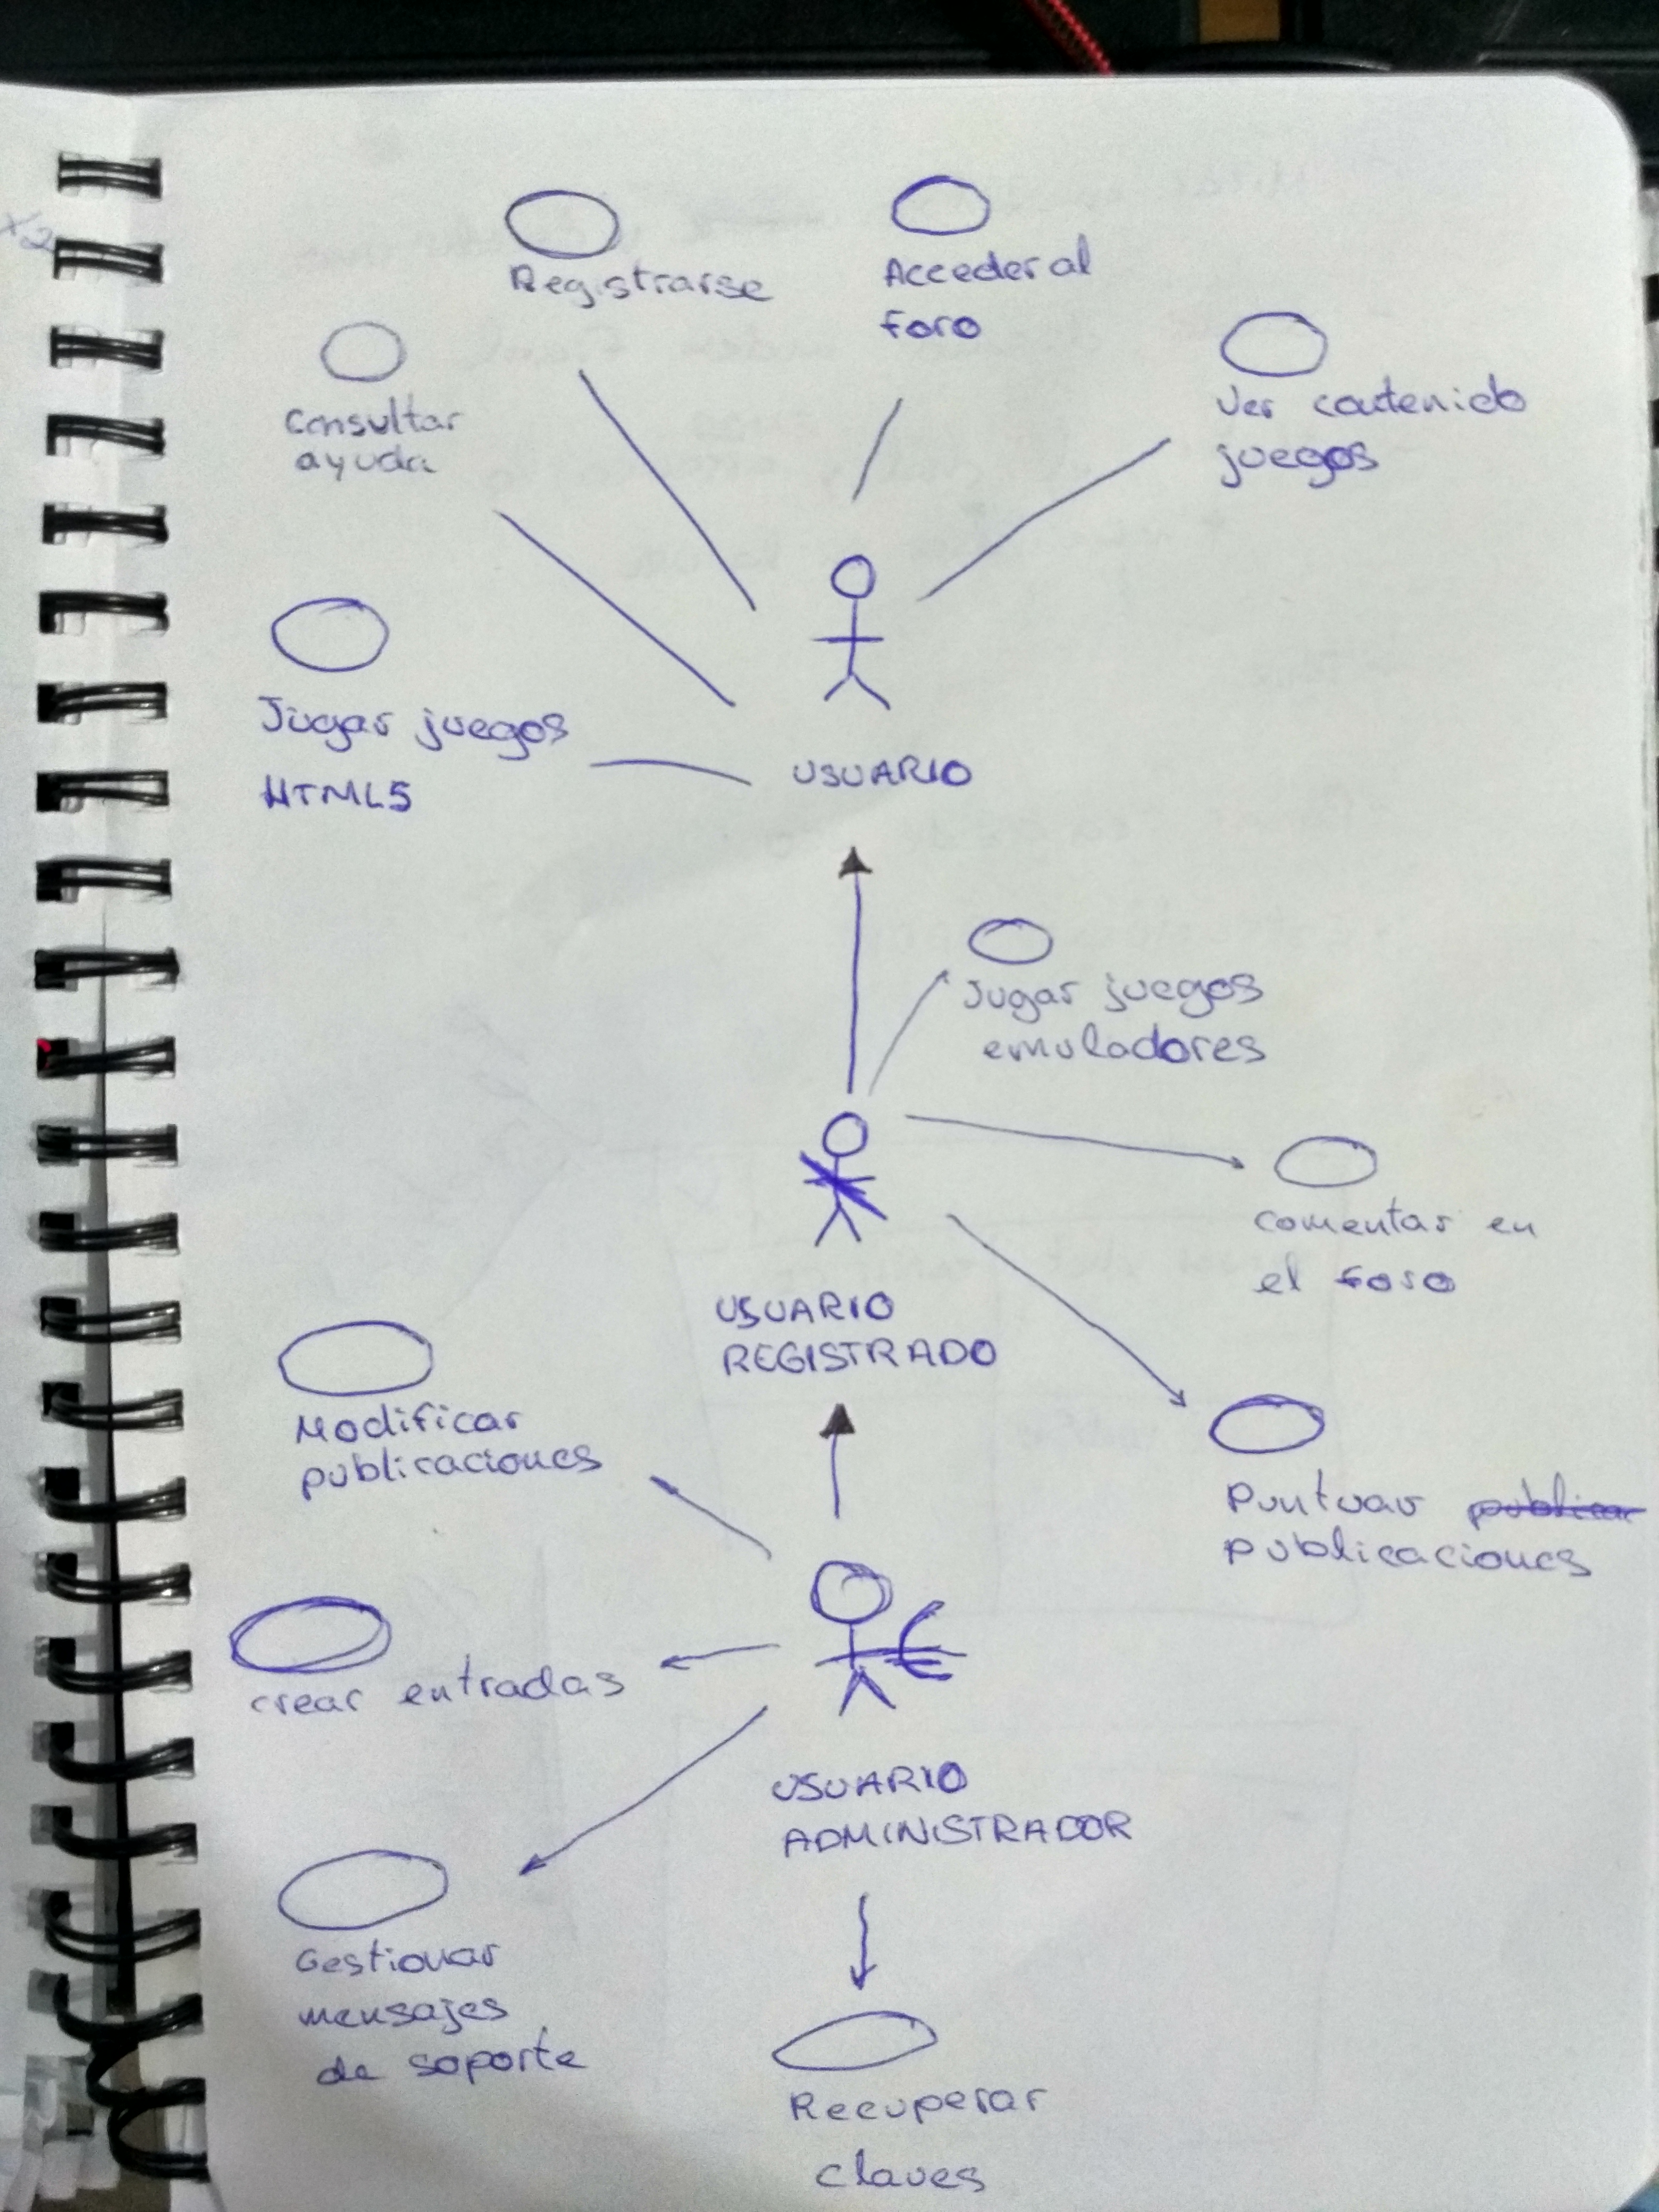 Registrarse
Acceder al
foro
Consultar
ayuda
Ver contenido
juegos
Jugar juegos
HTML5
USUARIO
Jugar juegos
emuladores
comentar en
el foro
USUARIO
REGISTRADO
Modificar
publicaciones
Puntuar publicar
publicaciones
crear entradas
USUARIO
ADMINISTRADOR
Gestionar
mensajes
de soporte
Recuperar
claves